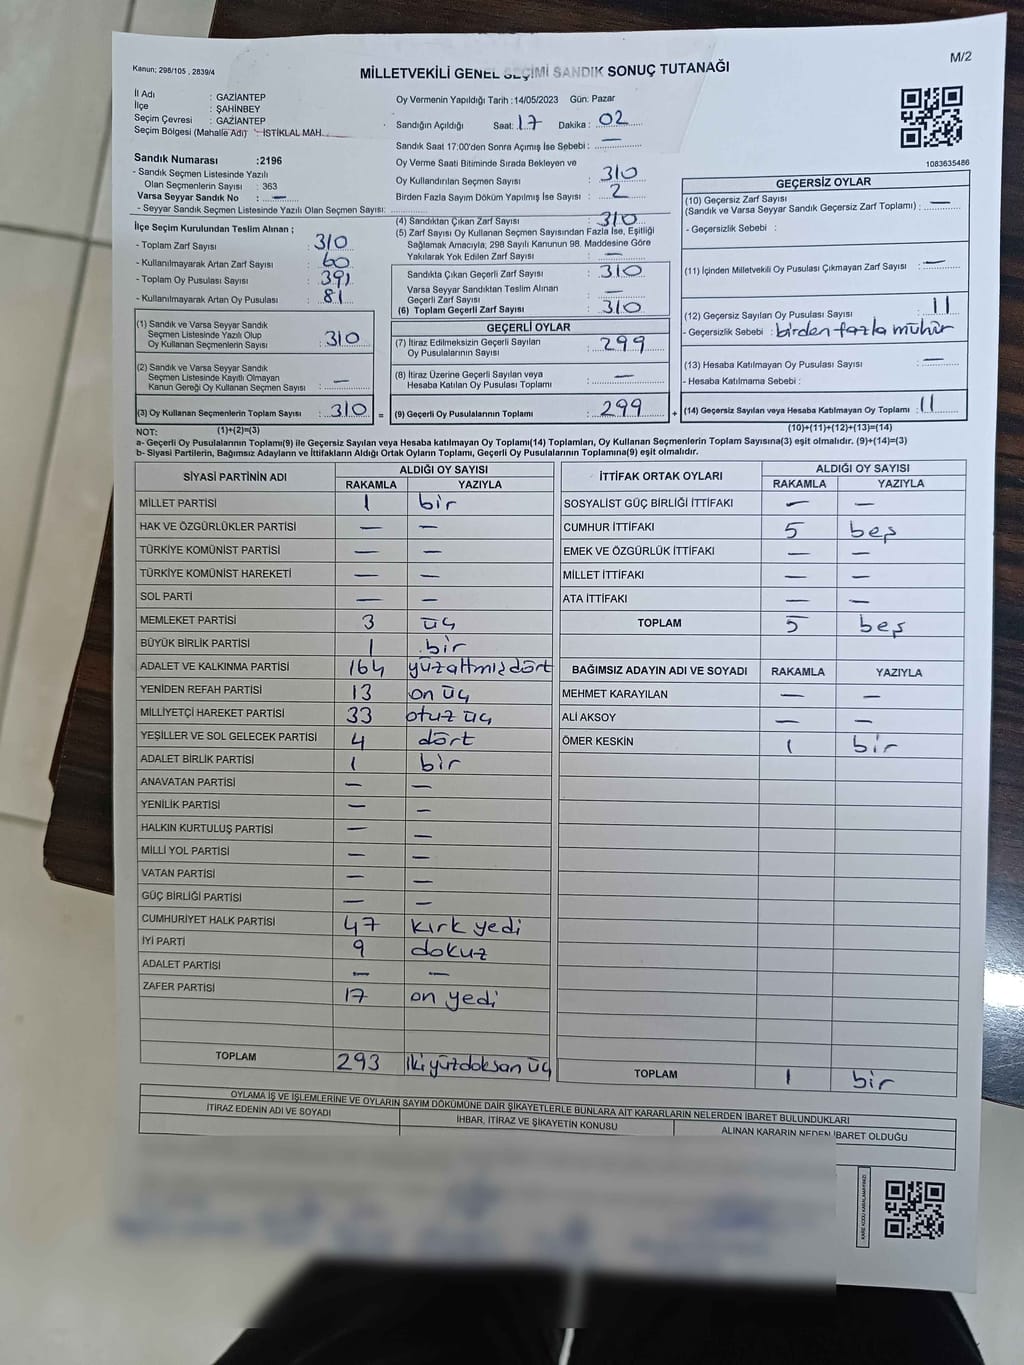 Kanun; 298/105 , 2839/4
MİLLETVEKİLİ GENEL SEÇİMİ SANDIK SONUÇ TUTANAĞI
M/2
İl Adı : GAZİANTEP
İlçe : ŞAHİNBEY
Seçim Çevresi : GAZİANTEP
Seçim Bölgesi (Mahalle Adı) : İSTİKLAL MAH.
Sandık Numarası :2196
- Sandık Seçmen Listesinde Yazılı
Olan Seçmenlerin Sayısı : 363
Varsa Seyyar Sandık No : —
- Seyyar Sandık Seçmen Listesinde Yazılı Olan Seçmen Sayısı:
Oy Vermenin Yapıldığı Tarih :14/05/2023 Gün: Pazar
Sandığın Açıldığı Saat: 17 Dakika : 02
Sandık Saat 17:00'den Sonra Açımış İse Sebebi : —
Oy Verme Saati Bitiminde Sırada Bekleyen ve
Oy Kullandırılan Seçmen Sayısı : 310
Birden Fazla Sayım Döküm Yapılmış İse Sayısı : 2
1083635486
İlçe Seçim Kurulundan Teslim Alınan ;
- Toplam Zarf Sayısı : 310
- Kullanılmayarak Artan Zarf Sayısı : 60
- Toplam Oy Pusulası : 391
- Kullanılmayarak Artan Oy Pusulası : 81
(1) Sandık ve Varsa Seyyar Sandık
Seçmen Listesinde Yazılı Olup
Oy Kullanan Seçmenlerin Sayısı : 310
(2) Sandık ve Varsa Seyyar Sandık
Seçmen Listesinde Kayılı Olmayan
Kanun Gereği Oy Kullanan Seçmen Sayısı : —
(3) Oy Kullanan Seçmenlerin Toplam Sayısı : 310 =
(1)+(2)=(3)
(4) Sandıktan Çıkan Zarf Sayısı : 310
(5) Zarf Sayısı Oy Kullanan Seçmen Sayısından Fazla İse, Eşitliği
Sağlamak Amacıyla; 298 Sayılı Kanunun 98. Maddesine Göre
Yakılarak Yok Edilen Zarf Sayısı : —
Sandıkta Çıkan Geçerli Zarf Sayısı : 310
Varsa Seyyar Sandıktan Teslim Alınan
Geçerli Zarf Sayısı : —
(6) Toplam Geçerli Zarf Sayısı : 310
GEÇERLİ OYLAR
(7) İtiraz Edilmeksizin Geçerli Sayılan
Oy Pusulalarının Sayısı : 299
(8) İtiraz Üzerine Geçerli Sayılan veya
Hesaba Katılan Oy Pusulası Toplamı : —
(9) Geçerli Oy Pusulalarının Toplamı : 299 +
GEÇERSİZ OYLAR
(10) Geçersiz Zarf Sayısı
(Sandık ve Varsa Seyyar Sandık Geçersiz Zarf Toplamı) : —
- Geçersizlik Sebebi :
(11) İçinden Milletvekili Oy Pusulası Çıkmayan Zarf Sayısı : —
(12) Geçersiz Sayılan Oy Pusulası Sayısı : 11
- Geçersizlik Sebebi : birden fazla mühür
(13) Hesaba Katılmayan Oy Pusulası Sayısı : —
- Hesaba Katılmama Sebebi :
(14) Geçersiz Sayılan veya Hesaba Katılmayan Oy Toplamı : 11
(10)+(11)+(12)+(13)=(14)
NOT:
a- Geçerli Oy Pusulalarının Toplamı(9) ile Geçersiz Sayılan veya Hesaba katılmayan Oy Toplamı(14) Toplamları, Oy Kullanan Seçmenlerin Toplam Sayısına(3) eşit olmalıdır. (9)+(14)=(3)
b- Siyasi Partilerin, Bağımsız Adayların ve İttifakların Aldığı Ortak Oyların Toplamı, Geçerli Oy Pusulalarının Toplamına(9) eşit olmalıdır.
SİYASİ PARTİNİN ADI ALDIĞI OY SAYISI
RAKAMLA YAZIYLA
MİLLET PARTİSİ 1 bir
HAK VE ÖZGÜRLÜKLER PARTİSİ — —
TÜRKİYE KOMÜNİST PARTİSİ — —
TÜRKİYE KOMÜNİST HAREKETİ — —
SOL PARTİ — —
MEMLEKET PARTİSİ 3 üç
BÜYÜK BİRLİK PARTİSİ 1 bir
ADALET VE KALKINMA PARTİSİ 164 yüzaltmışdört
YENİDEN REFAH PARTİSİ 13 on üç
MİLLİYETÇİ HAREKET PARTİSİ 33 otuz üç
YEŞİLLER VE SOL GELECEK PARTİSİ 4 dört
ADALET BİRLİK PARTİSİ 1 bir
ANAVATAN PARTİSİ — —
YENİLİK PARTİSİ — —
HALKIN KURTULUŞ PARTİSİ — —
MİLLİ YOL PARTİSİ — —
VATAN PARTİSİ — —
GÜÇ BİRLİĞİ PARTİSİ — —
CUMHURİYET HALK PARTİSİ 47 kırk yedi
İYİ PARTİ 9 dokuz
ADALET PARTİSİ — —
ZAFER PARTİSİ 17 on yedi
TOPLAM 293 ikiyüzdoksan üç
İTTİFAK ORTAK OYLARI ALDIĞI OY SAYISI
RAKAMLA YAZIYLA
SOSYALİST GÜÇ BİRLİĞİ İTTİFAKI — —
CUMHUR İTTİFAKI 5 beş
EMEK VE ÖZGÜRLÜK İTTİFAKI — —
MİLLET İTTİFAKI — —
ATA İTTİFAKI — —
TOPLAM 5 beş
BAĞIMSIZ ADAYIN ADI VE SOYADI RAKAMLA YAZIYLA
MEHMET KARAYILAN — —
ALİ AKSOY — —
ÖMER KESKİN 1 bir
TOPLAM 1 bir
OYLAMA İŞ VE İŞLEMLERİNE VE OYLARIN SAYIM DÖKÜMÜNE DAİR ŞİKAYETLERLE BUNLARA AİT KARARLARIN NELERDEN İBARET BULUNDUKLARI
İTİRAZ EDENİN ADI VE SOYADI İHBAR, İTİRAZ VE ŞİKAYETİN KONUSU ALINAN KARARIN NEDEN İBARET OLDUĞU
KARE KODU KARALAMAYINIZ!